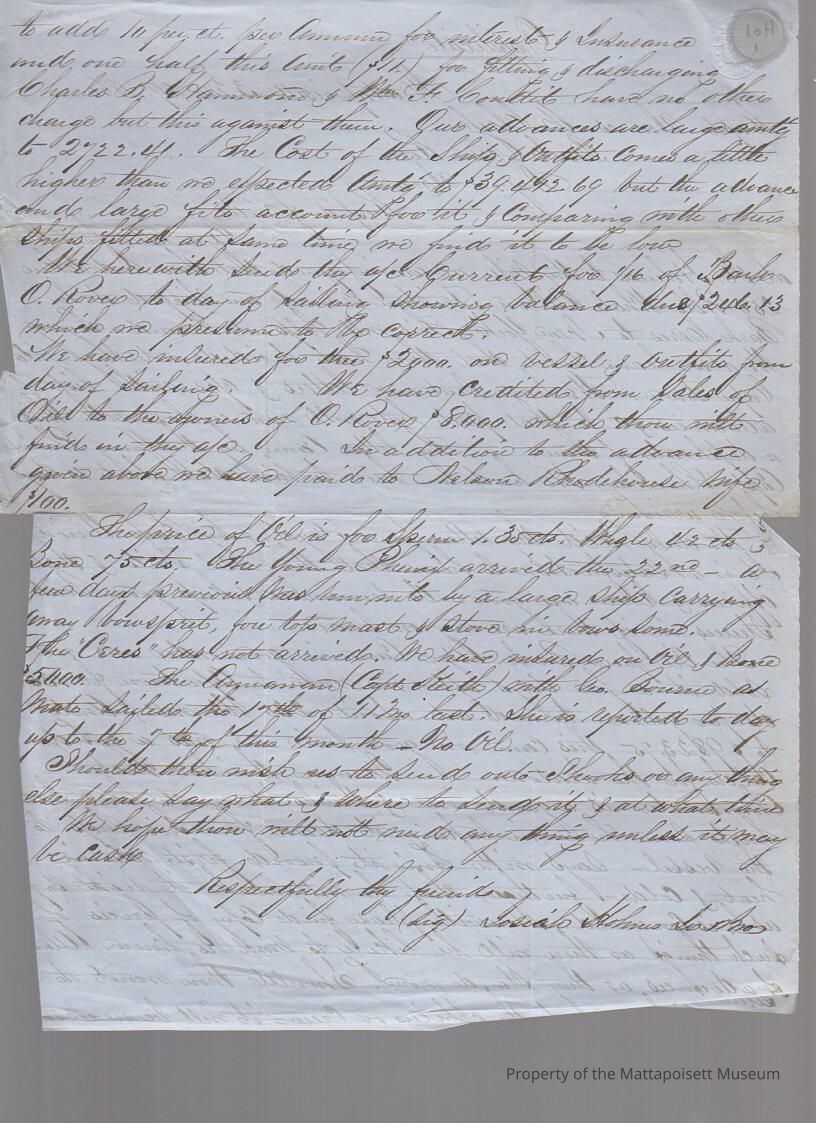 to add 10 per ct. per Annum for interest & Insurance
and one half this Amt (&11.) for fitting & discharging
Charles B. Hammond & Wm F. have no other
charge but this against them. Our advances are large amtg
to 2722.41. The Cost of the Ship & Outfits Comes a little
higher than we expected Amtg to $39,492 69 but the advance
and large fits account for it, & Comparing with other
ships fitted at same time we find it to be low
We herewith send thy a/c Current for 1/16 of Bark
O. Rover to day of sailing showing balance due $246.13
which we presume to be correct.
We have insured for thee $2000. on vessel & Outfits from
day of sailing We have Credited from sales of
Oil to the owners of O. Rover $8.000. which thou wilt
find in thy a/c In addition to the advance
given above we have paid to Nelson Rhodehouse Wife
$100.
The price of Oil is for Sperm 1.30 cts. Whale 42 cts
Bone 75 cts. The Young Phenix arrived the 22nd - a
few days previous was run into by a large ship Carrying
away bowsprit, fore top mast & stove in bows some.
The "Ceres" has not arrived. We have insured on Oil & Bone
$5000. The (Capt Keith) with Geo. Bourne as
Mate sailed the 17th of 11 Mo last. She is reported to day
up to the 7th of this month - No Oil.
Should thou wish us to send out or any thing
else please say what & where to send it & at what time
We hope thou wilt not need any thing unless it may
be Cash
Respectfully thy friends
(sig) Josiah Holmes Jr & Bro
Property of the Mattapoisett Museum